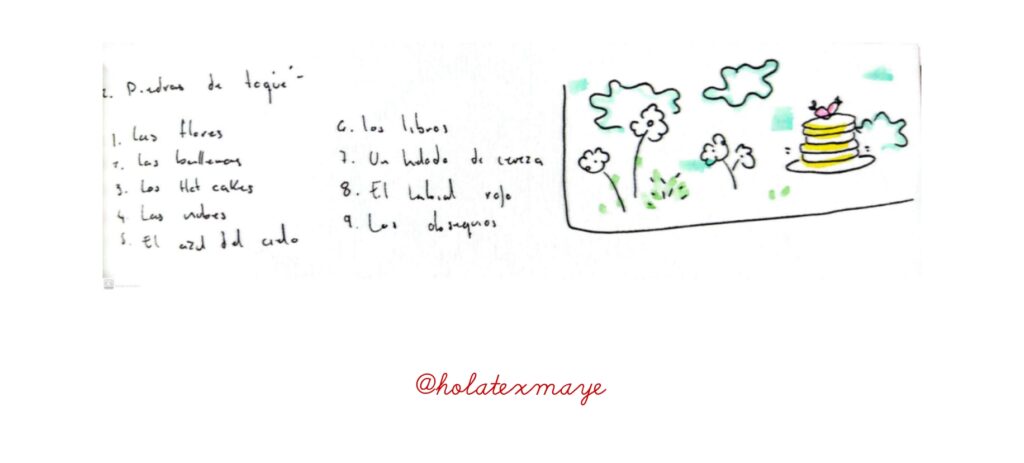 2. Piedras de toque -
1. Las flores
2. Las ballenas
3. Los Hot cakes
4. Las nubes
5. El azul del cielo
6. Los libros
7. Un helado de cereza
8. El labial rojo
9. Los obsequios
@holatexmaye